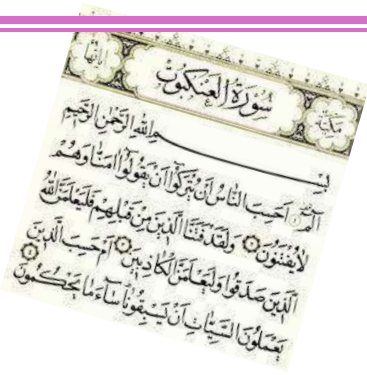 سُورَةُ الْعَنْكَبُوتِ
مَكِّيَّة
بِسْمِ اللّٰهِ الرَّحْمٰنِ الرَّحِيمِ
الٓمٓ ﴿١﴾ اَحَسِبَ النَّاسُ اَنْ يُتْرَكُٓوا اَنْ يَقُولُٓوا اٰمَنَّا وَهُمْ
لَا يُفْتَنُونَ ﴿٢﴾ وَلَقَدْ فَتَنَّا الَّذِينَ مِنْ قَبْلِهِمْ فَلَيَعْلَمَنَّ اللّٰهُ
الَّذِينَ صَدَقُوا وَلَيَعْلَمَنَّ الْكَاذِبِينَ ﴿٣﴾ اَمْ حَسِبَ الَّذِينَ
يَعْمَلُونَ السَّيِّـَٔاتِ اَنْ يَسْبِقُونَا سَٓاءَ مَا يَحْكُمُونَ ﴿٤﴾